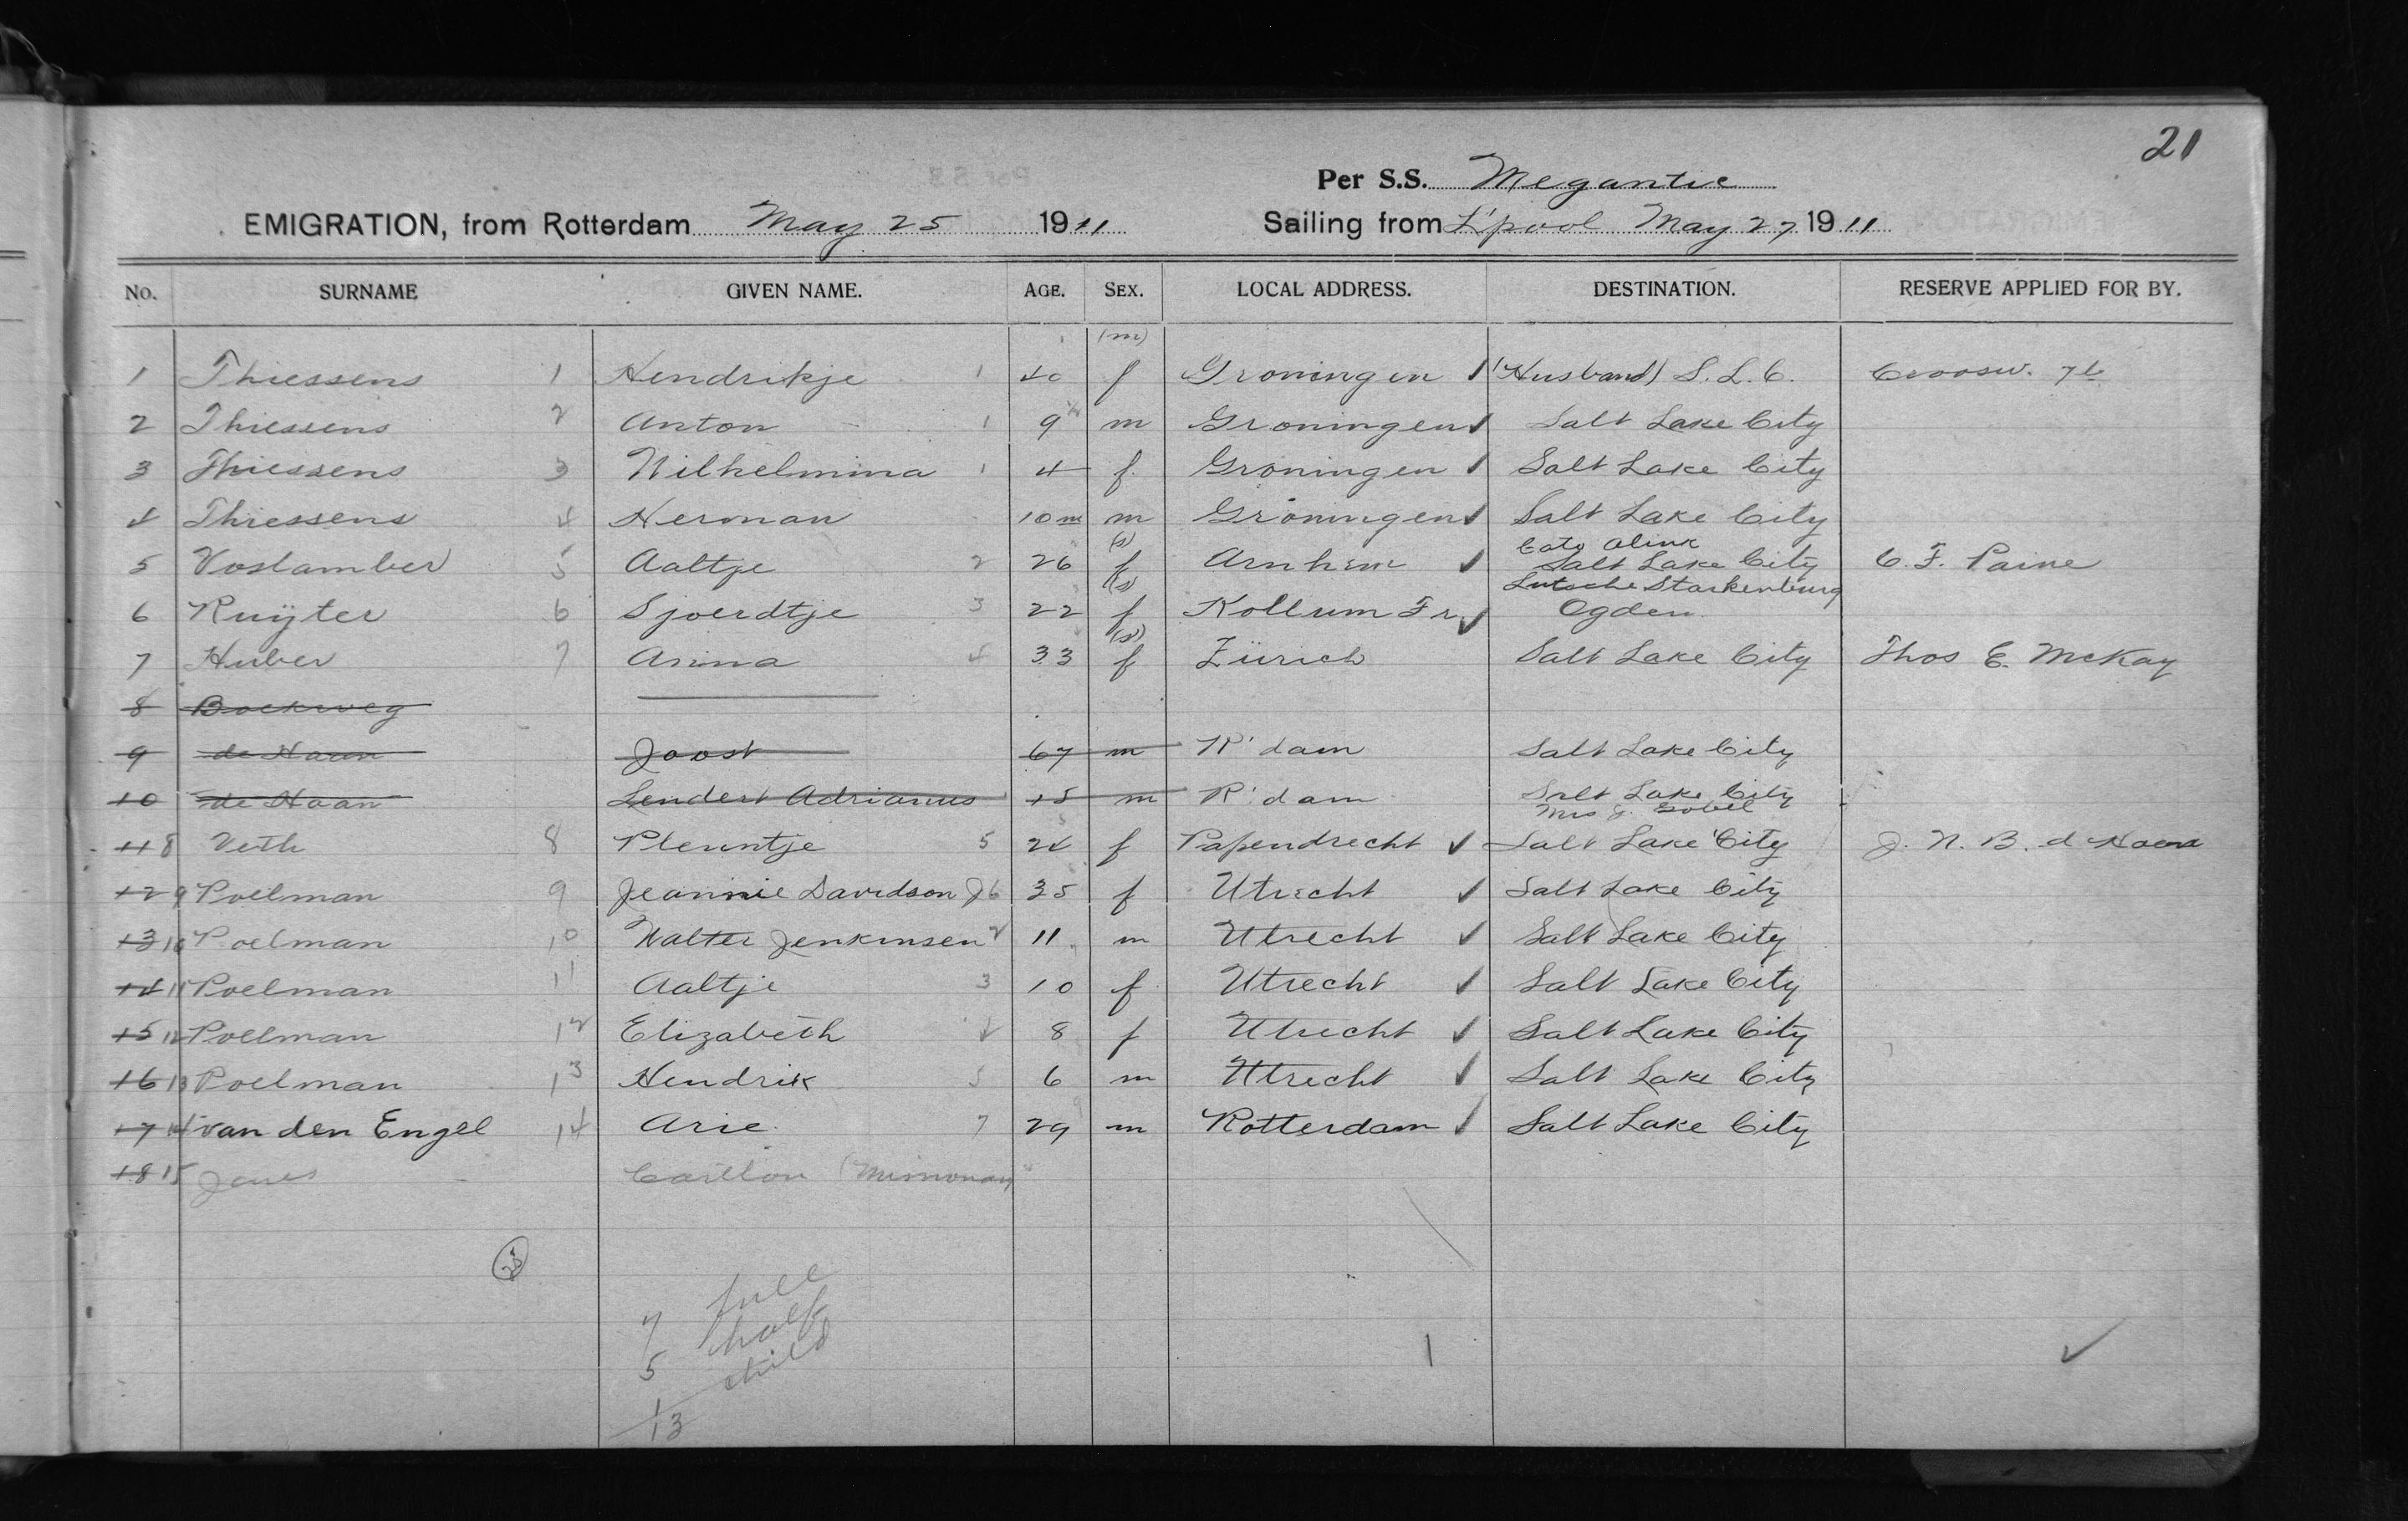 21
Per S.S. Megantic
EMIGRATION, from Rotterdam May 25 1911 Sailing from L'pool May 27 1911
No. SURNAME GIVEN NAME. AGE. SEX. LOCAL ADDRESS. DESTINATION. RESERVE APPLIED FOR BY.
(m)
1 Thiessens 1 Hendrikje 1 40 f Groningen (Husband) S.L.C. Croosw. 7b
2 Thiessens 2 Anton 1 9 m Groningen Salt Lake City
3 Thiessens 3 Wilhelmina 1 4 f. Groningen Salt Lake City
4 Thiessens 4 Herman 10m m Groningen Salt Lake City
(s) Cato Alink
5 Vostamber 5 Aaltje 2 26 f Arnhem ✓ Salt Lake City C. F. Paine
(s) Lutsche Starkenburg
6 Ruÿter 6 Sjoerdtje 3 22 f Kollum Fr. ✓ Ogden
(s)
7 Huber 7 Anna 4 33 f Zürich Salt Lake City Thos E. McKay
8 Boekweg
9 de Haan Joost 67 m R'dam Salt Lake City
10 de Haan Lendert Adrianus 15 m R'dam Salt Lake City
Mrs J. Gobel
11 8 Veth 8 Pleuntje 5 24 f Papendrecht ✓ Salt Lake City J. N. B. d Haens
12 9 Poelman 9 Jeannie Davidson J 6 35 f Utrecht ✓ Salt Lake City
13 10 Poelman 10 Walter Jenkinsen 2 11 m Utrecht ✓ Salt Lake City
14 11 Poelman 11 Aaltje 3 10 f Utrecht ✓ Salt Lake City
15 12 Poelman 12 Elizabeth 4 8 f Utrecht ✓ Salt Lake City
16 13 Poelman 13 Hendrik 5 6 m Utrecht ✓ Salt Lake City
17 14 van den Engel 14 Arie 7 29 m Rotterdam ✓ Salt Lake City
18 15 Carlton
7 full
5 half
1 child
13